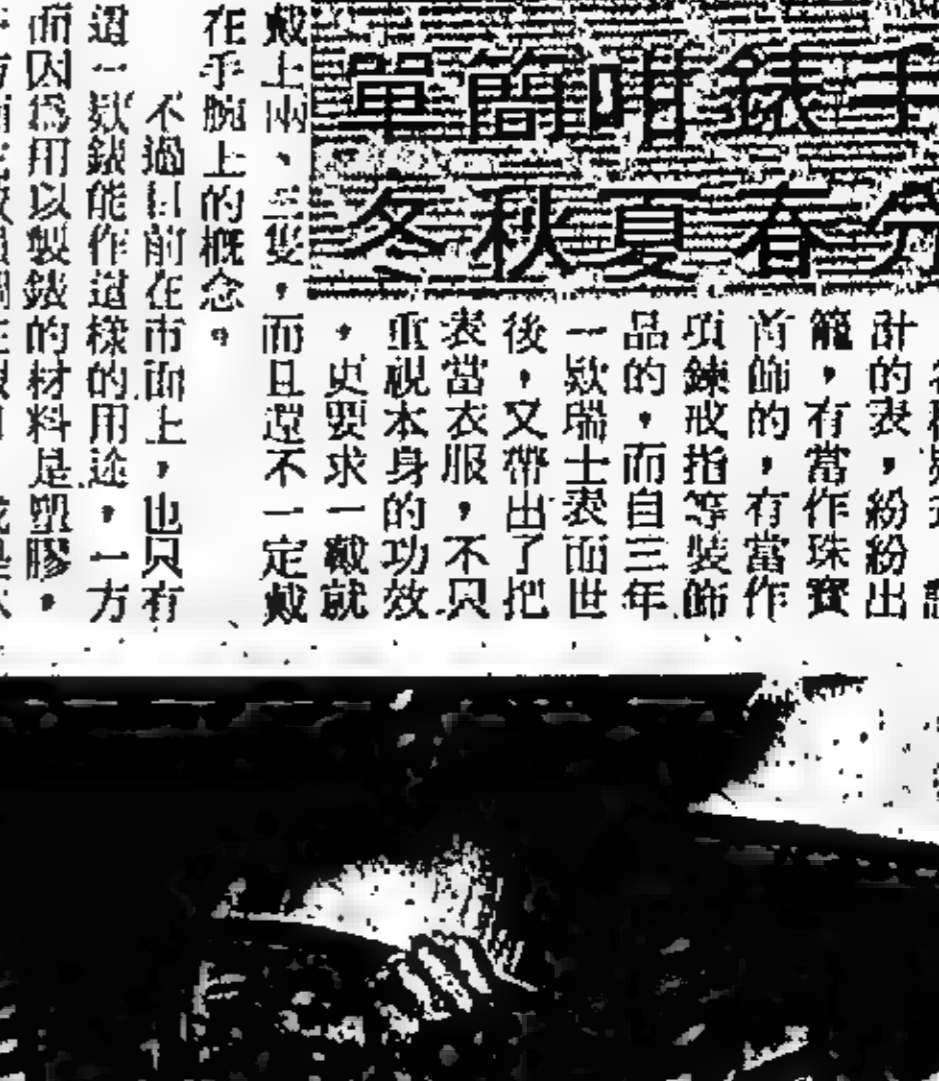 手錶咁簡單
分春夏秋冬
計的表，紛紛出
籠，有當作珠寶
首飾的，有當作
項鍊戒指等裝飾
品的，而自三年
一欵瑞士表面世
後，又帶出了把
表當衣服，不只
重視本身的功效
，更要求一戴就
戴上兩、三隻，而且還不一定戴
在手腕上的概念。
不過目前在市面上，也只有
這一欵錶能作這樣的用途，一方
面因爲用以製錶的材料是塑膠，